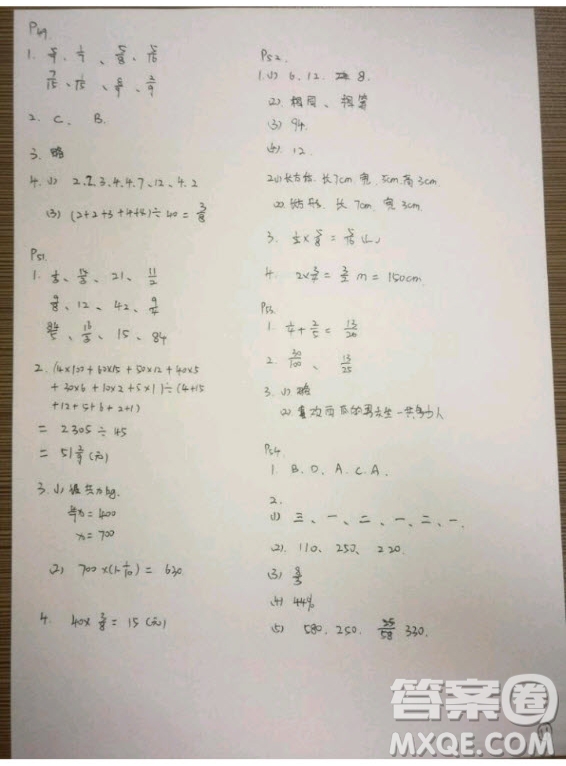 P49
1. 5/9、1/7、5/8、5/16
7/15、1/15、8/9、2/9
2. C、B.
3. 略
4. (1) 2.2.3.4.4.7、12、4.2
(3) (2+2+3+4+4)÷40=3/8
P51.
21、11/2
9/8、12、42、9/4
84/5、15、84
2. (4×100+60×15+50×12+40×5
+30×6+10×2+5×1)÷(4+15
+12+5+6+2+1)
=2305÷45
=51 2/9(元)
=400
x=700
(2) 700×(1-1/10)=630
4. 40×3/8=15(元)
P52.
1.(1) 6.12. 8.
(2). 相同、相等
(3) 94.
(4). 12.
2.(1)长方体.长7cm.宽5cm.高3cm.
(2) 长方形.长7cm.宽3cm.
3. 1/2×5/8=5/16(L)
4. 2×3/4=3/2 m=150cm.
P53.
1. 1/4+2/5=13/20
2. 30/100、13/25
3.(1)略
P54.
1. B. D. A. C. A.
2.
(1) 三、一、二、一、二、一.
(2). 110、250、220.
(3) 8/3
(4) 44%
(5) 580. 250. 25/58 330.
答案圈
MXQE.COM